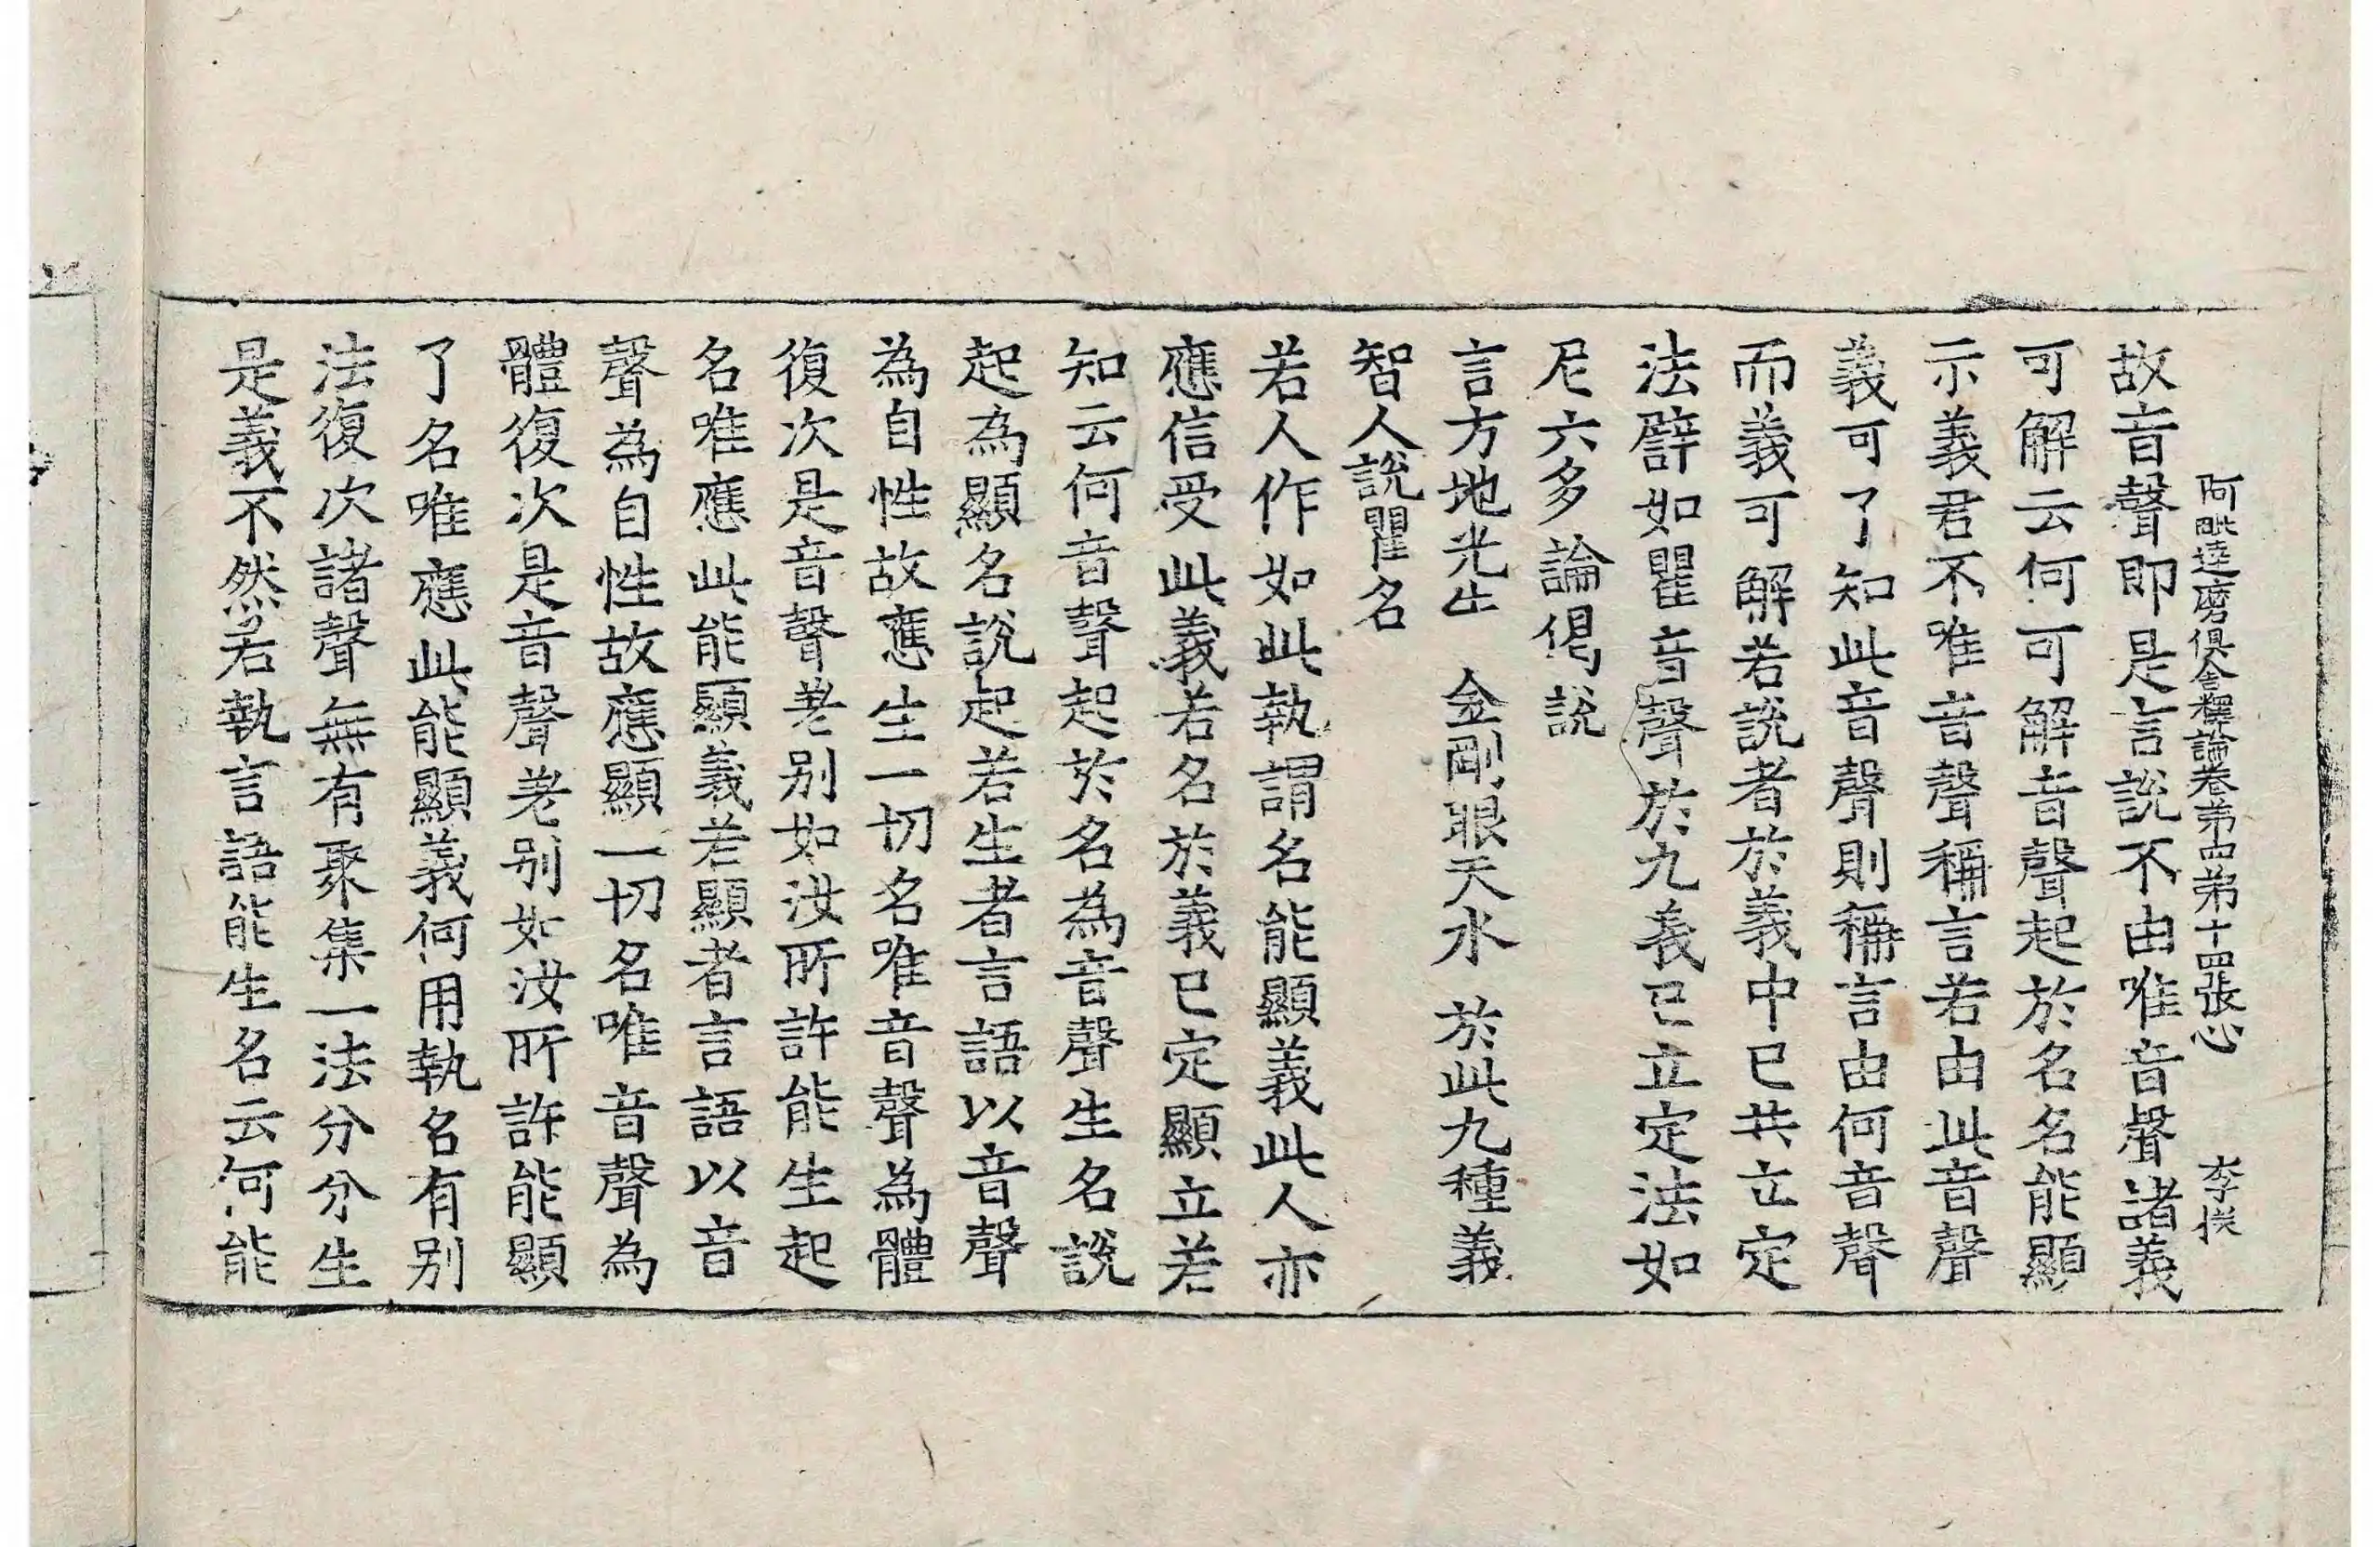 阿毗達磨俱舍釋論卷第四第十四張心 李𢮦
故音聲即是言說不由唯音聲諸義
可解云何可解音聲起於名名能顯
示義君不唯音聲稱言若由此音聲
義可了知此音聲則稱言由何音聲
而義可解若說者於義中已共立定
法譬如瞿音聲於九義已立定法如
尼六多論偈說
言方地光牛 金剛眼天水 於此九種義
智人說瞿名
若人作如此執謂名能顯義此人亦
應信受此義若名於義已定顯立若
知云何音聲起於名為音聲生名說
起為顯名說起若生者言語以音聲
為自性故應生一切名唯音聲為體
復次是音聲差別如汝所許能生起
名唯應此能顯義若顯者言語以音
聲為自性故應顯一切名唯音聲為
體復次是音聲差別如汝所許能顯
了名唯應此能顯義何用執名有別
法復次諸聲無有聚集一法分分生
是義不然若執言語能生名云何能